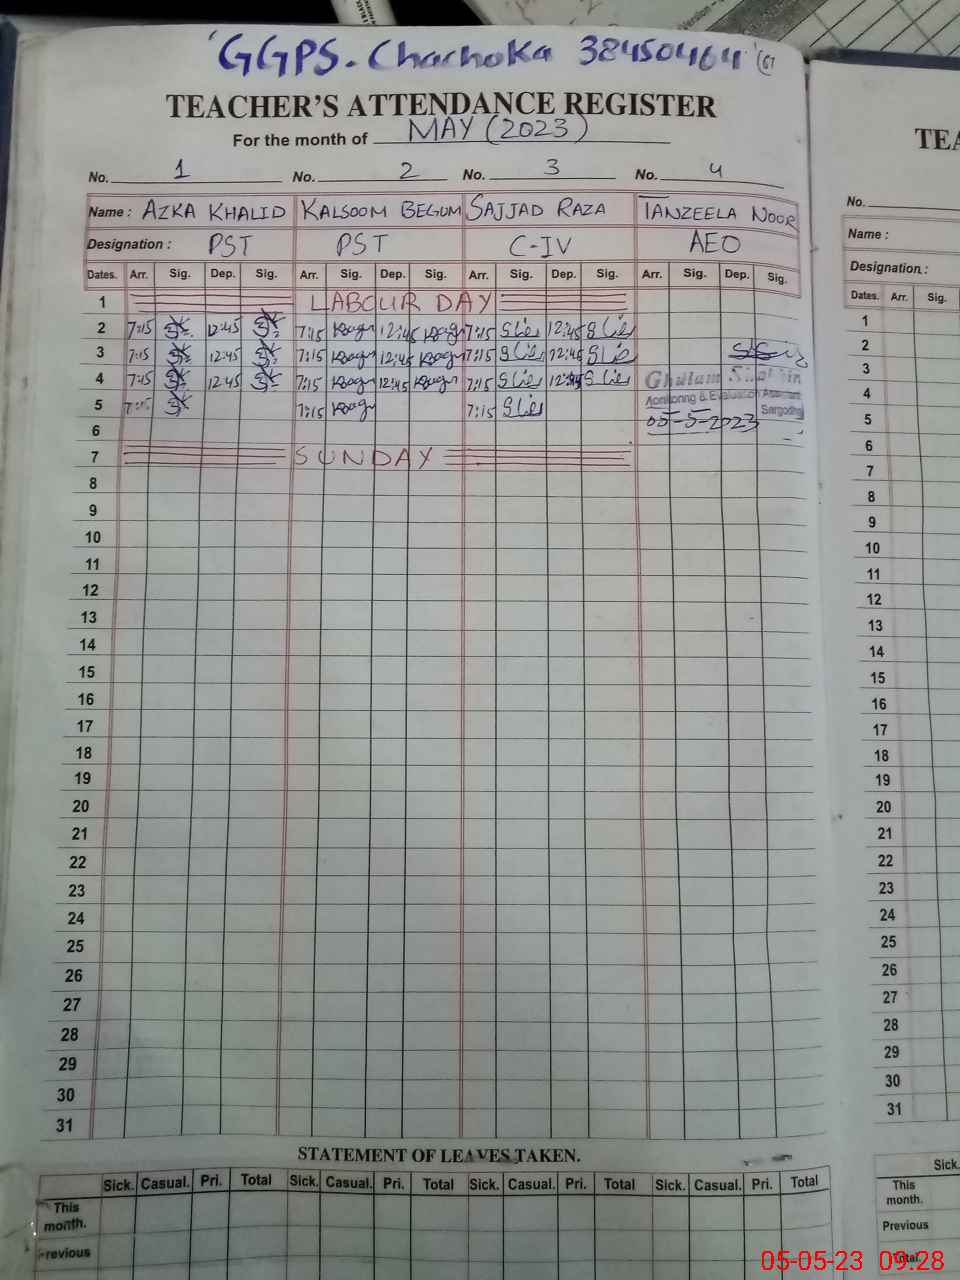 GGPS. Chachoka 38450464
TEACHER'S ATTENDANCE REGISTER
For the month of MAY (2023)
No. 1 No. 2 No. 3 No. 4
Name : AZKA KHALID KALSOOM BEGUM SAJJAD RAZA TANZEELA NOOR
Designation : PST PST C-IV AEO
Dates. Arr. Sig. Dep. Sig. Arr. Sig. Dep. Sig. Arr. Sig. Dep. Sig. Arr. Sig. Dep. Sig.
1 LABOUR DAY
2 7:15 12:45 7:15 12:45 7:15 12:45
3 7:15 12:45 7:15 12:45 7:15 12:45
4 7:15 12:45 7:15 12:45 7:15 Ghulam
Monitoring & Evaluation Assistant
5 7:15 7:15 7:15 Sargodha
05-5-2023
6
7 SUNDAY
8
9
10
11
12
13
14
15
16
17
18
19
20
21
22
23
24
25
26
27
28
29
30
31
STATEMENT OF LEAVES TAKEN.
Sick. Casual. Pri. Total Sick. Casual. Pri. Total Sick. Casual. Pri. Total Sick. Casual. Pri. Total
This month.
Previous
TEA
No.
Name :
Designation :
Dates. Arr. Sig.
1
2
3
4
5
6
7
8
9
10
11
12
13
14
15
16
17
18
19
20
21
22
23
24
25
26
27
28
29
30
31
Sick.
This month.
Previous
Total.
05-05-23 09:28